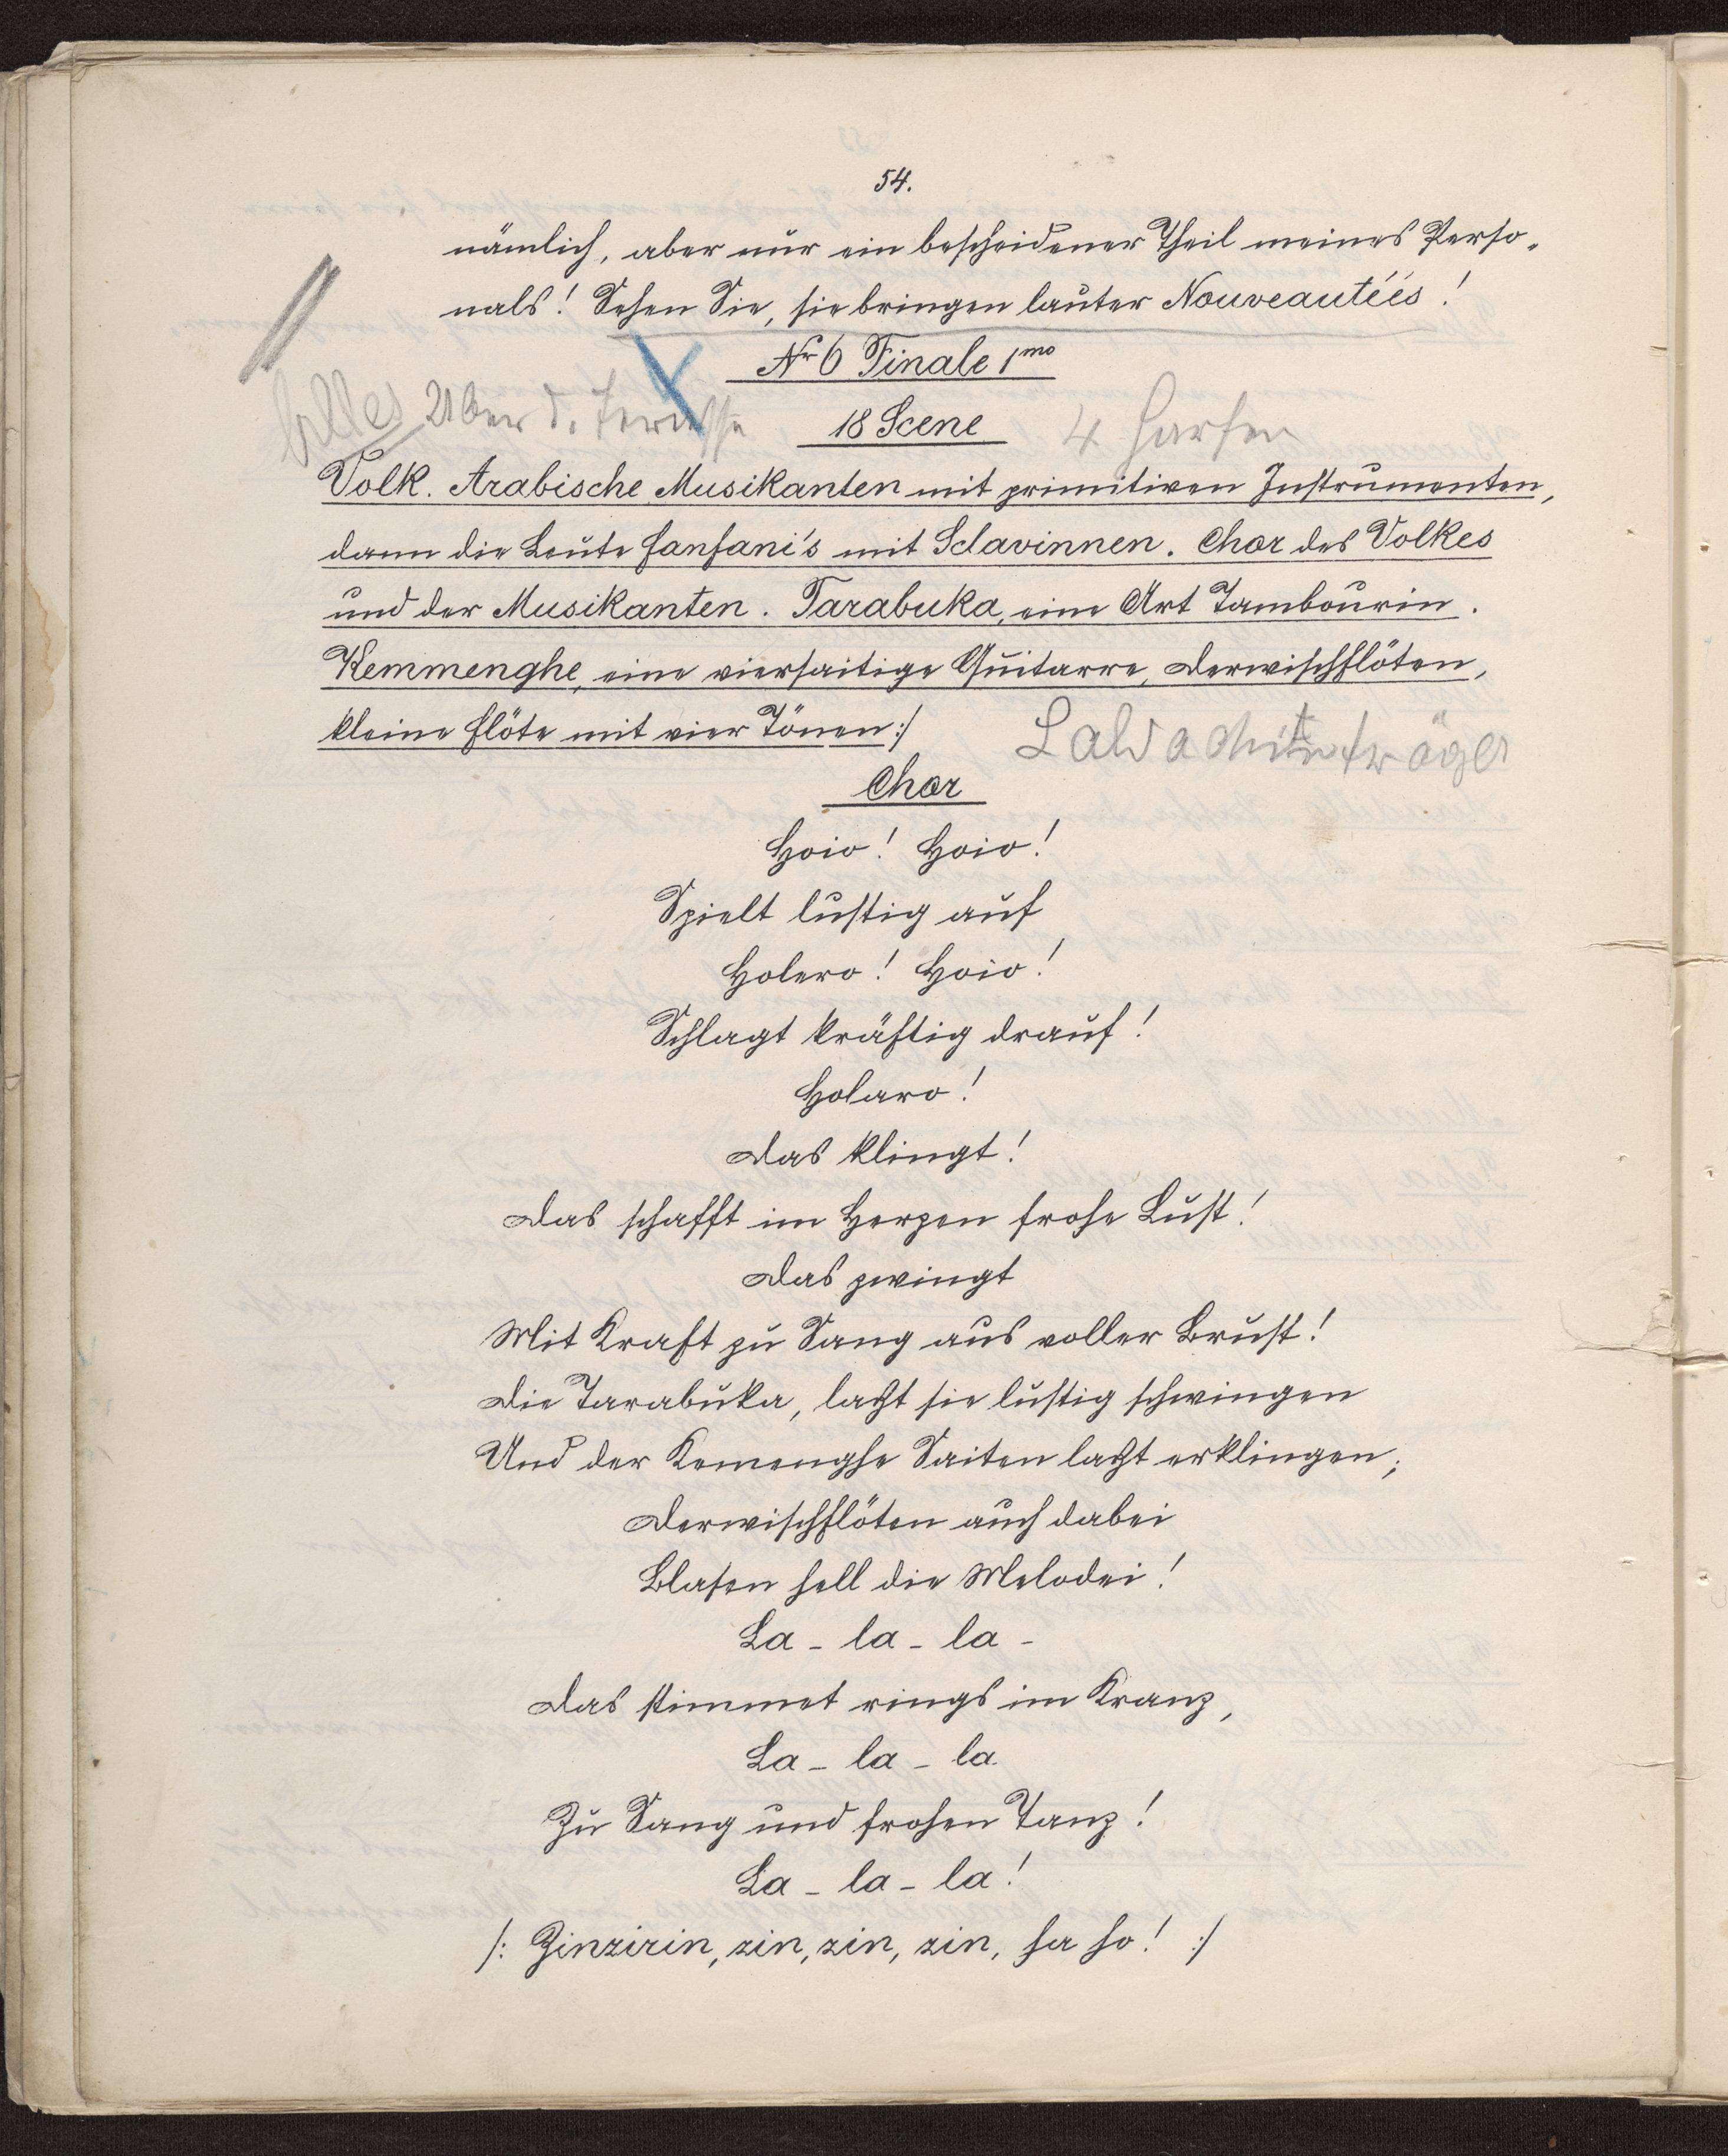 54.
nämlich, aber nur ein bescheidener Theil meines Perso-
nals! Sehen Sie, sie bringen lauter Nouveautéés!
Nr 6 Finale 1mo
Alles über d. Terasse
18 Scene
4 Harfen
Volk. Arabische Musikanten mit primitiven Instrumenten,
dann die Leute Fanfani's mit Sclavinnen. Chor des Volkes
und der Musikanten. Tarabuka, eine Art Tambourin.
Kemmenghe, eine viersaitige Guitarre, Derwischflöten,
kleine Flöte mit vier Tönen :/
Baldachinträger
Chor
Hoio! Hoio!
Spielt lustig auf
Holero! Hoio!
Schlagt kräftig drauf!
Holaro!
Das klingt!
Das schafft im Herzen frohe Lust!
Das zwingt
Mit Kraft zu Sang aus voller Brust!
Die Tarabuka, laßt sie lustig schwingen
Und der Kemenghe Saiten laßt erklingen;
Derwischflöten auch dabei
Blasen hell die Melodei!
La - la - la -
Das stimmet rings im Kranz,
La - la - la
Zu Sang und frohen Tanz!
La - la - la!
/: Zinzirin, zin, zin, zin, ha ho! :/